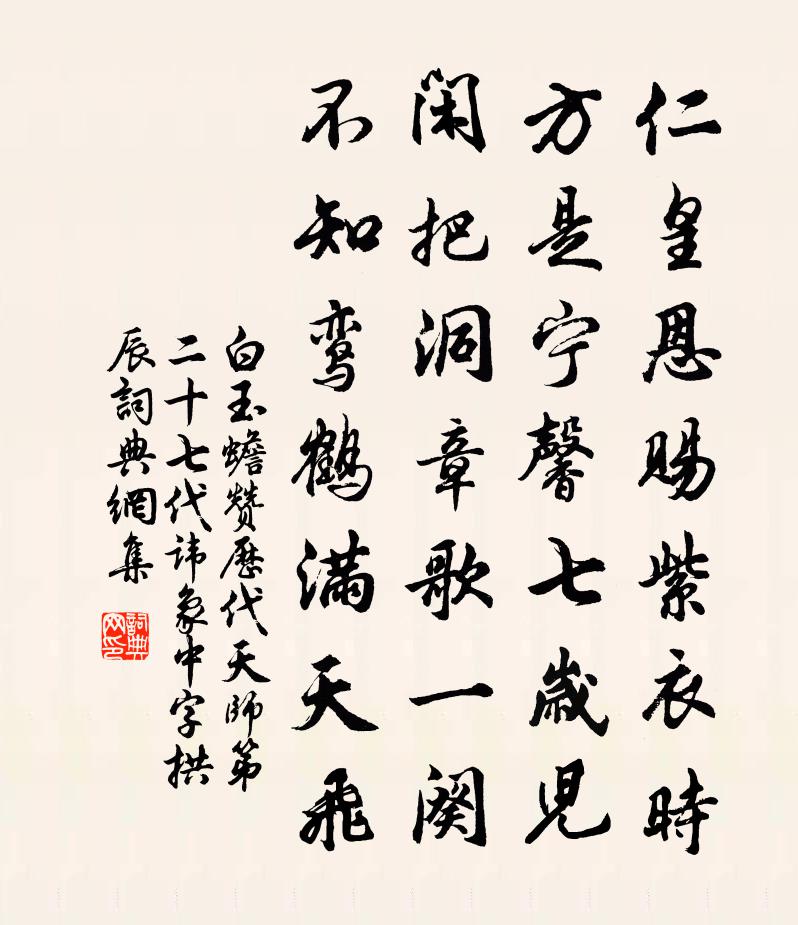 仁皇恩赐紫衣時
方是宁馨七歲児
闲把洞章歌一阕
不知鸾鹤满天飛
白玉蟾赞歷代天師第
二十七代讳象中字拱
辰詞典網集
詞典网印